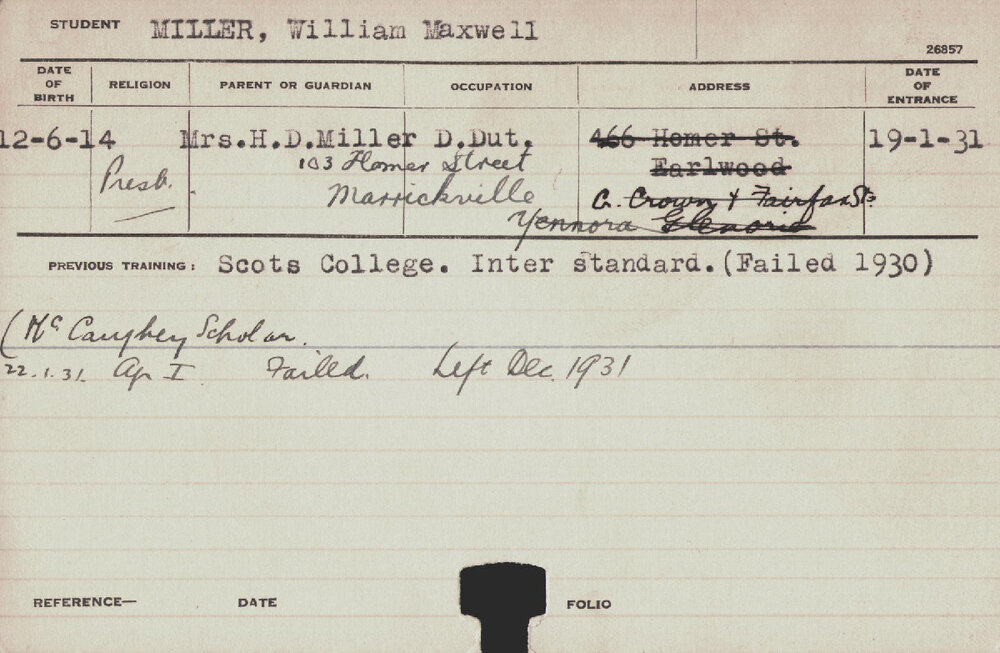 STUDENT MILLER, William Maxwell
26857
DATE OF BIRTH RELIGION PARENT OR GUARDIAN OCCUPATION ADDRESS DATE OF ENTRANCE
12-6-14 Mrs.H.D.Miller D.Dut. 466 Homer St. 19-1-31
Presb. 103 Homer Street Earlwood
Marrickville C. Crown & Fairfax Sts
Yennora Glenorie
PREVIOUS TRAINING: Scots College. Inter standard.(Failed 1930)
(McCaughey Scholar.
22.1.31. Ap I Failed. Left Dec. 1931
REFERENCE— DATE FOLIO